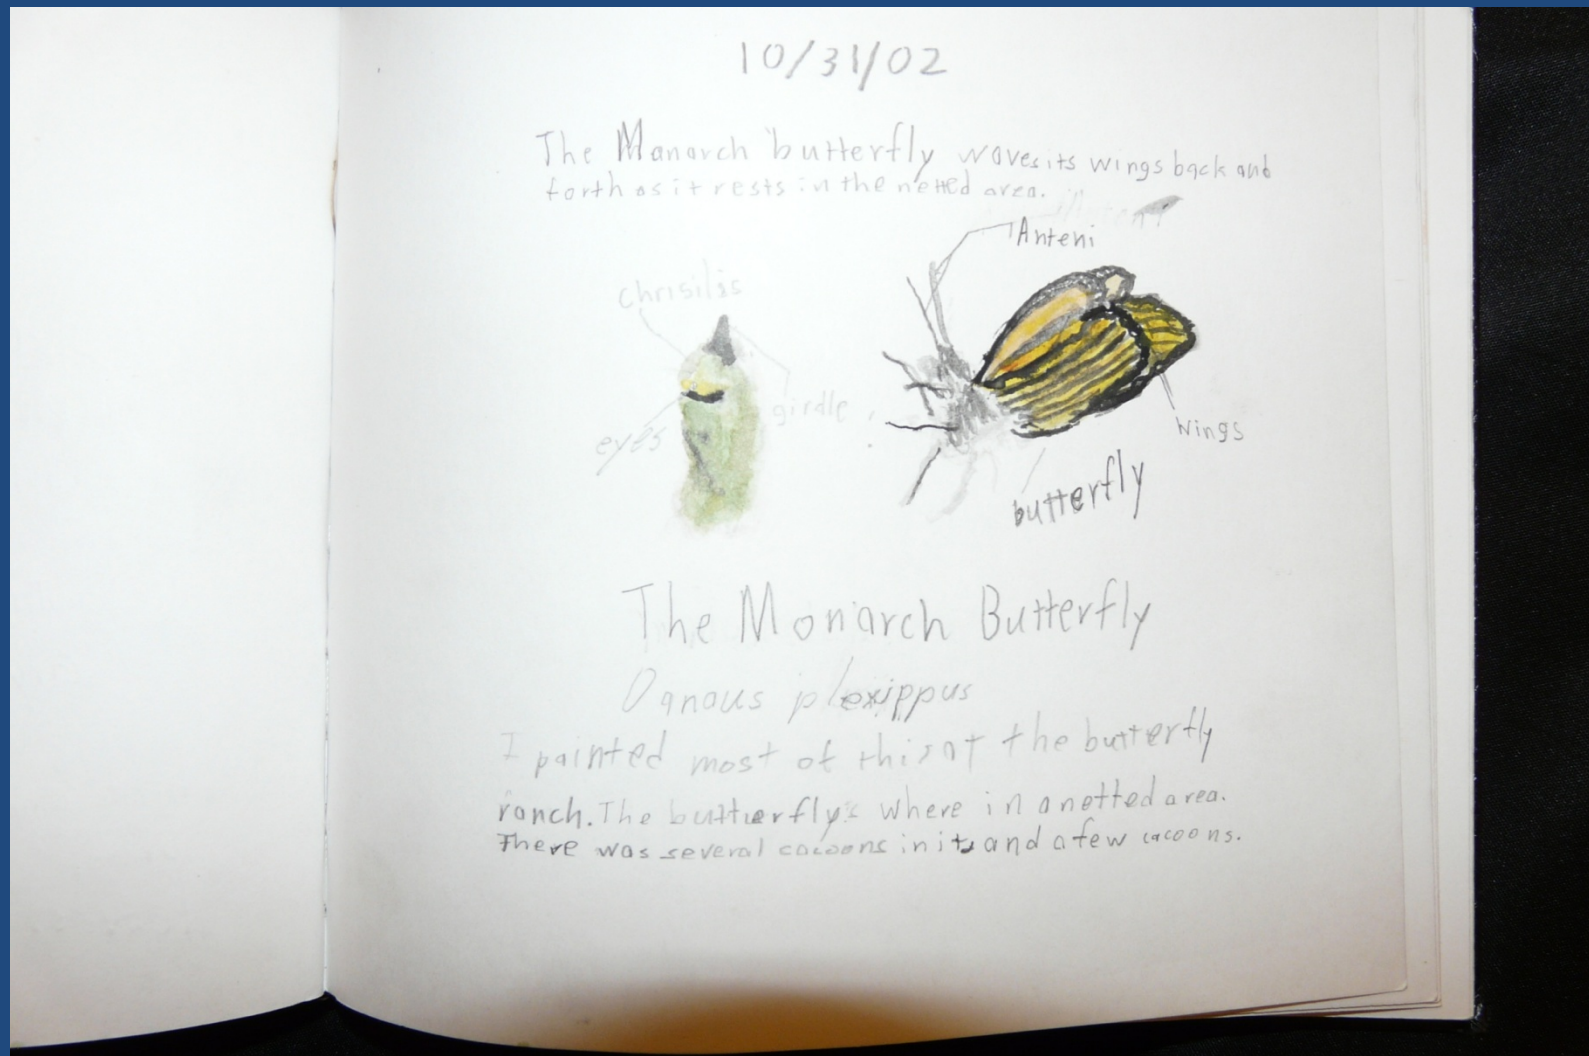 10/31/02
The Monarch butterfly waves its wings back and
forth as it rests in the netted area.
Anteni
chrisilis
girdle
eyes
wings
butterfly
The Monarch Butterfly
Danaus plexippus
I painted most of this at the butterfly
ranch. The butterfly's where in a netted area.
There was several cacoons in it and a few cacoons.